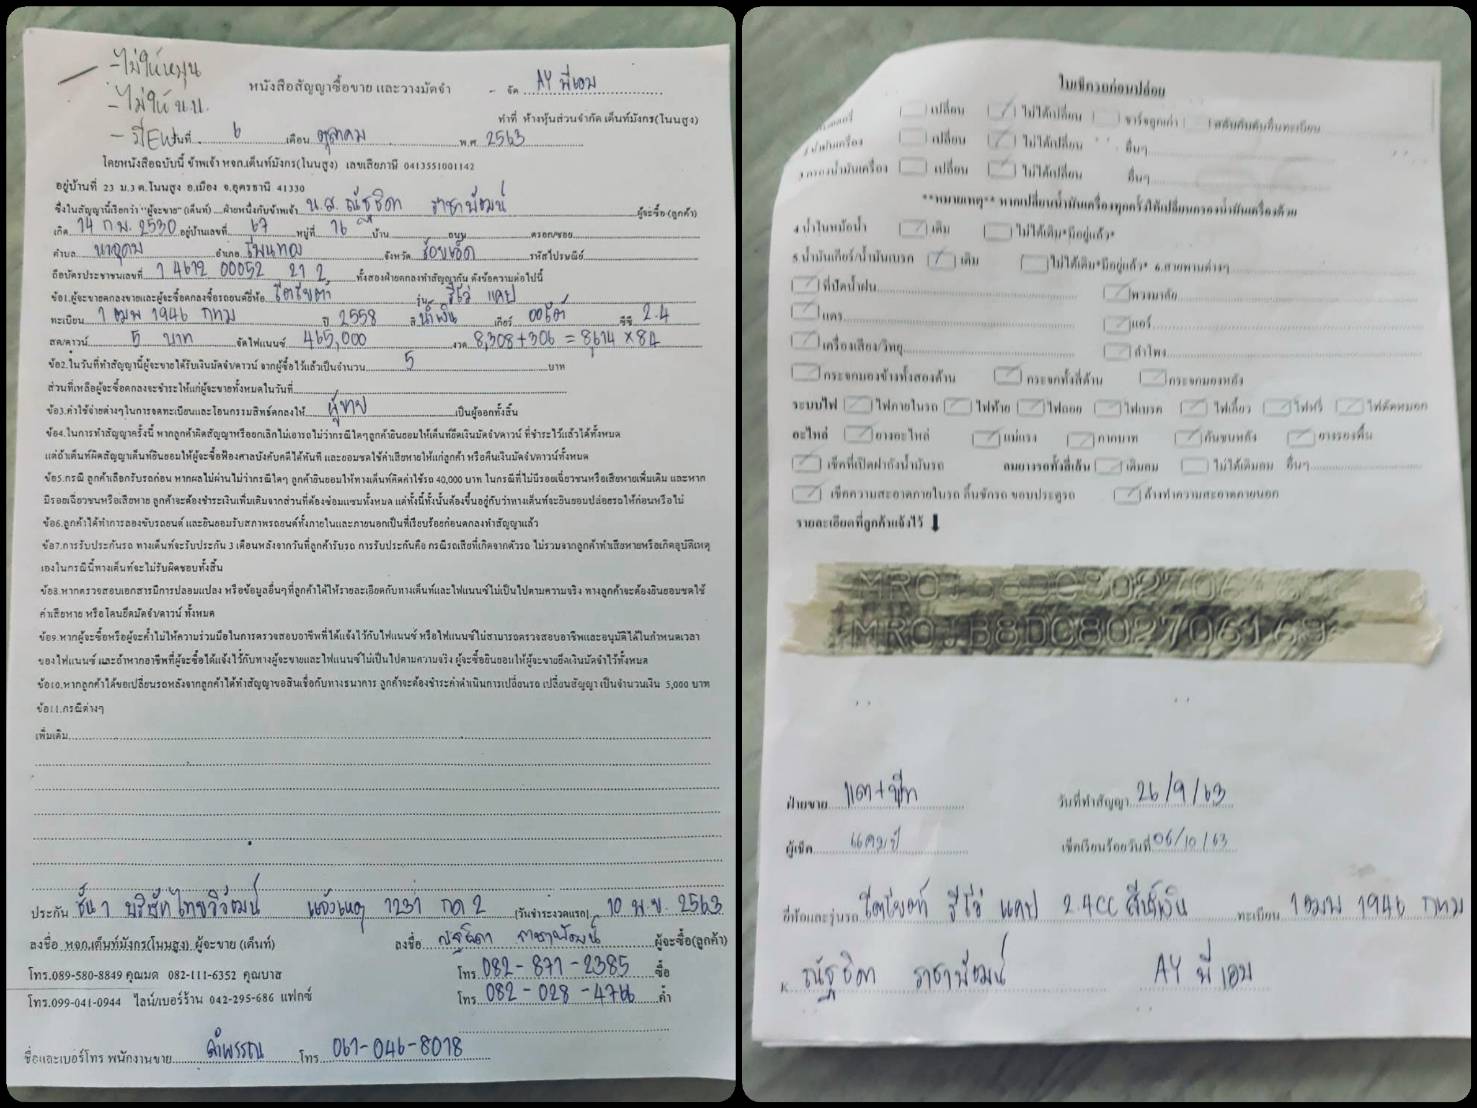 -ไม่ให้หมุน
-ไม่ให้ น.บ.
หนังสือสัญญาซื้อขาย และวางมัดจำ - จัด AY พี่เอม
ทำที่ ห้างหุ้นส่วนจำกัด เต็นท์มังกร(โนนสูง)
วันที่ 6 เดือน ตุลาคม พ.ศ. 2563
โดยหนังสือฉบับนี้ ข้าพเจ้า หจก.เต็นท์มังกร(โนนสูง) เลขเสียภาษี 0413551001142
อยู่บ้านที่ 23 ม.3 ต.โนนสูง อ.เมือง จ.อุดรธานี 41330
ซึ่งในสัญญานี้เรียกว่า "ผู้จะขาย"(เต็นท์) ฝ่ายหนึ่งกับข้าพเจ้า น.ส. ณัฐธิดา ราชาพัฒน์ ผู้จะซื้อ(ลูกค้า)
เกิด 14 ก.พ. 2530 อยู่บ้านเลขที่ 67 หมู่ที่ 16 บ้าน ถนน ตรอก/ซอย
ตำบล นาอุดม อำเภอ โพนทอง จังหวัด ร้อยเอ็ด รหัสไปรษณีย์
ถือบัตรประชาชนเลขที่ 1 4612 00052 21 2 ทั้งสองฝ่ายตกลงทำสัญญากัน ดังข้อความต่อไปนี้
ข้อ1.ผู้จะขายตกลงขายและผู้จะซื้อตกลงซื้อรถยนต์ยี่ห้อ โตโยต้า รุ่น รีโว่ แคป
ทะเบียน 1 ฒพ 1946 กทม ปี 2558 สี น้ำเงิน เกียร์ ออโต้ ซีซี 2.4
สด/ดาวน์ 5 บาท จัดไฟแนนซ์ 465,000 งวด 8,308+306 = 8,614 x 84
ข้อ2.ในวันที่ทำสัญญานี้ผู้จะขายได้รับเงินมัดจำ/ดาวน์ จากผู้ซื้อไว้แล้วเป็นจำนวน 5 บาท
ส่วนที่เหลือผู้จะซื้อตกลงจะชำระให้แก่ผู้จะขายทั้งหมดในวันที่
ข้อ3.ค่าใช้จ่ายต่างๆในการจดทะเบียนและโอนกรรมสิทธ์ตกลงให้ ผู้ขาย เป็นผู้ออกทั้งสิ้น
ข้อ4.ในการทำสัญญาครั้งนี้ หากลูกค้าผิดสัญญาหรือยกเลิกไม่เอารถ ไม่ว่ากรณีใดๆลูกค้ายินยอมให้เต็นท์ยึดเงินมัดจำ/ดาวน์ ที่ชำระไว้แล้วได้ทั้งหมด
แต่ถ้าเต็นท์ผิดสัญญาเต็นท์ยินยอมให้ผู้จะซื้อฟ้องศาลบังคับคดีได้ทันที และยอมชดใช้ค่าเสียหายให้แก่ลูกค้า หรือคืนเงินมัดจำ/ดาวน์ทั้งหมด
ข้อ5.กรณี ลูกค้าเลือกรับรถก่อน หากผลไม่ผ่านไม่ว่ากรณีใดๆ ลูกค้ายินยอมให้ทางเต็นท์คิดค่าใช้รถ 40,000 บาท ในกรณีที่ไม่มีรอยเฉี่ยวชนหรือเสียหายเพิ่มเติม และหาก
มีรอยเฉี่ยวชนหรือเสียหาย ลูกค้าจะต้องชำระเงินเพิ่มเติมจากส่วนที่ต้องซ่อมแซมทั้งหมด แต่ทั้งนี้ทั้งนั้นต้องขึ้นอยู่กับว่าทางเต็นท์จะยินยอมปล่อยรถให้ก่อนหรือไม่
ข้อ6.ลูกค้าได้ทำการลองขับรถยนต์ และยินยอมรับสภาพรถยนต์ทั้งภายในและภายนอกเป็นที่เรียบร้อยก่อนตกลงทำสัญญาแล้ว
ข้อ7.การรับประกันรถ ทางเต็นท์จะรับประกัน 3 เดือนหลังจากวันที่ลูกค้ารับรถ การรับประกันคือ กรณีรถเสียที่เกิดจากตัวรถ ไม่รวมจากลูกค้าทำเสียหายหรือเกิดอุบัติเหตุ
เองในกรณีนี้ทางเต็นท์จะไม่รับผิดชอบทั้งสิ้น
ข้อ8.หากตรวจสอบเอกสารมีการปลอมแปลง หรือข้อมูลอื่นๆที่ลูกค้าได้ให้รายละเอียดกับทางเต็นท์และไฟแนนซ์ไม่เป็นไปตามความจริง ทางลูกค้าจะต้องยินยอมชดใช้
ค่าเสียหาย หรือโดนยึดมัดจำ/ดาวน์ ทั้งหมด
ข้อ9.หากผู้จะซื้อหรือผู้จะค้ำไม่ให้ความร่วมมือในการตรวจสอบอาชีพที่ได้แจ้งไว้กับไฟแนนซ์ หรือไฟแนนซ์ไม่สามารถตรวจสอบอาชีพและอนุมัติได้ในกำหนดเวลา
ของไฟแนนซ์ และถ้าหากอาชีพที่ผู้จะซื้อได้แจ้งไว้กับทางผู้จะขายและไฟแนนซ์ไม่เป็นไปตามความจริง ผู้จะซื้อยินยอมให้ผู้จะขายยึดเงินมัดจำไว้ทั้งหมด
ข้อ10.หากลูกค้าได้ขอเปลี่ยนรถหลังจากลูกค้าได้ทำสัญญาขอสินเชื่อกับทางธนาคาร ลูกค้าจะต้องชำระค่าดำเนินการเปลี่ยนรถ เปลี่ยนสัญญา เป็นจำนวนเงิน 5,000 บาท
ข้อ11.กรณีต่างๆ
เพิ่มเติม
ประกัน ชั้น 1 บริษัทไทยวิวัฒน์ แจ้งเหตุ 1231 กด 2 (วันชำระงวดแรก) 10 พ.ย. 2563
ลงชื่อ หจก.เต็นท์มังกร(โนนสูง) ผู้จะขาย (เต็นท์) ลงชื่อ ณัฐธิดา ราชาพัฒน์ ผู้จะซื้อ(ลูกค้า)
โทร.089-580-8849 คุณมด 082-111-6352 คุณบาส โทร. 082-871-2385 ซื้อ
โทร.099-041-0944 ไลน์/เบอร์ร้าน 042-295-686 แฟกซ์ โทร. 082-028-4766 ค้ำ
ชื่อและเบอร์โทร พนักงานขาย ลำพรรณ โทร 061-046-8018
ใบเช็ครถก่อนปล่อย
เปลี่ยน ไม่ได้เปลี่ยน ชาร์จลูกเก่า
น้ำมันเครื่อง เปลี่ยน ไม่ได้เปลี่ยน อื่นๆ
3.กรองน้ำมันเครื่อง เปลี่ยน ไม่ได้เปลี่ยน อื่นๆ
**หมายเหตุ** หากเปลี่ยนน้ำมันเครื่องทุกครั้งให้เปลี่ยนกรองน้ำมันเครื่องด้วย
4.น้ำในหม้อน้ำ เติม ไม่ได้เติม*มีอยู่แล้ว*
5.น้ำมันเกียร์/น้ำมันเบรค เติม ไม่ได้เติม*มีอยู่แล้ว* 6.สายพานต่างๆ
ที่ปัดน้ำฝน พวงมาลัย
แตร แอร์
เครื่องเสียง/วิทยุ ลำโพง
กระจกมองข้างทั้งสองด้าน กระจกทั้งสี่ด้าน กระจกมองหลัง
ระบบไฟ ไฟภายในรถ ไฟท้าย ไฟถอย ไฟเบรค ไฟเลี้ยว ไฟหรี่ ไฟตัดหมอก
อะไหล่ ยางอะไหล่ แม่แรง กากบาท คันชนหลัง ยางรองพื้น
เช็คที่เปิดฝาถังน้ำมันรถ ลมยางรถทั้งสี่เส้น เติมลม ไม่ได้เติมลม อื่นๆ
เช็คความสะอาดภายในรถ ลิ้นชักรถ ขอบประตูรถ ล้างทำความสะอาดภายนอก
รายละเอียดที่ลูกค้าแจ้งไว้ ⬇
MR0JB8DC802706169
ฝ่ายขาย วันที่ทำสัญญา 26/9/63
ผู้เช็ค แคมป์ เช็คเรียบร้อยวันที่ 06/10/63
ยี่ห้อและรุ่นรถ โตโยต้า รีโว่ แคป 2.4CC สีน้ำเงิน ทะเบียน 1ฒพ 1946 กทม
K. ณัฐธิดา ราชาพัฒน์ AY พี่เอม